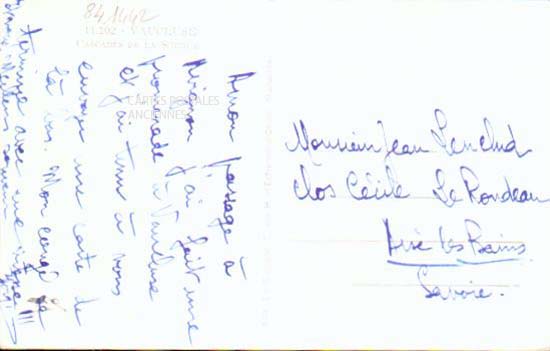 84 1442
11.202 - VAUCLUSE
CASCADES DE LA SORGUE
CARTES POSTALES
ANCIENNES
A mon passage à
Avignon j'ai fait une
promenade à Vaucluse
et j'ai tenu à vous
envoyer une carte de
là bas. Mon congé se
termine avec une vitesse !!!
Meilleurs souvenirs
Monsieur Jean
Clos Cécile Le Rondeau
Aix les Bains
Savoie.